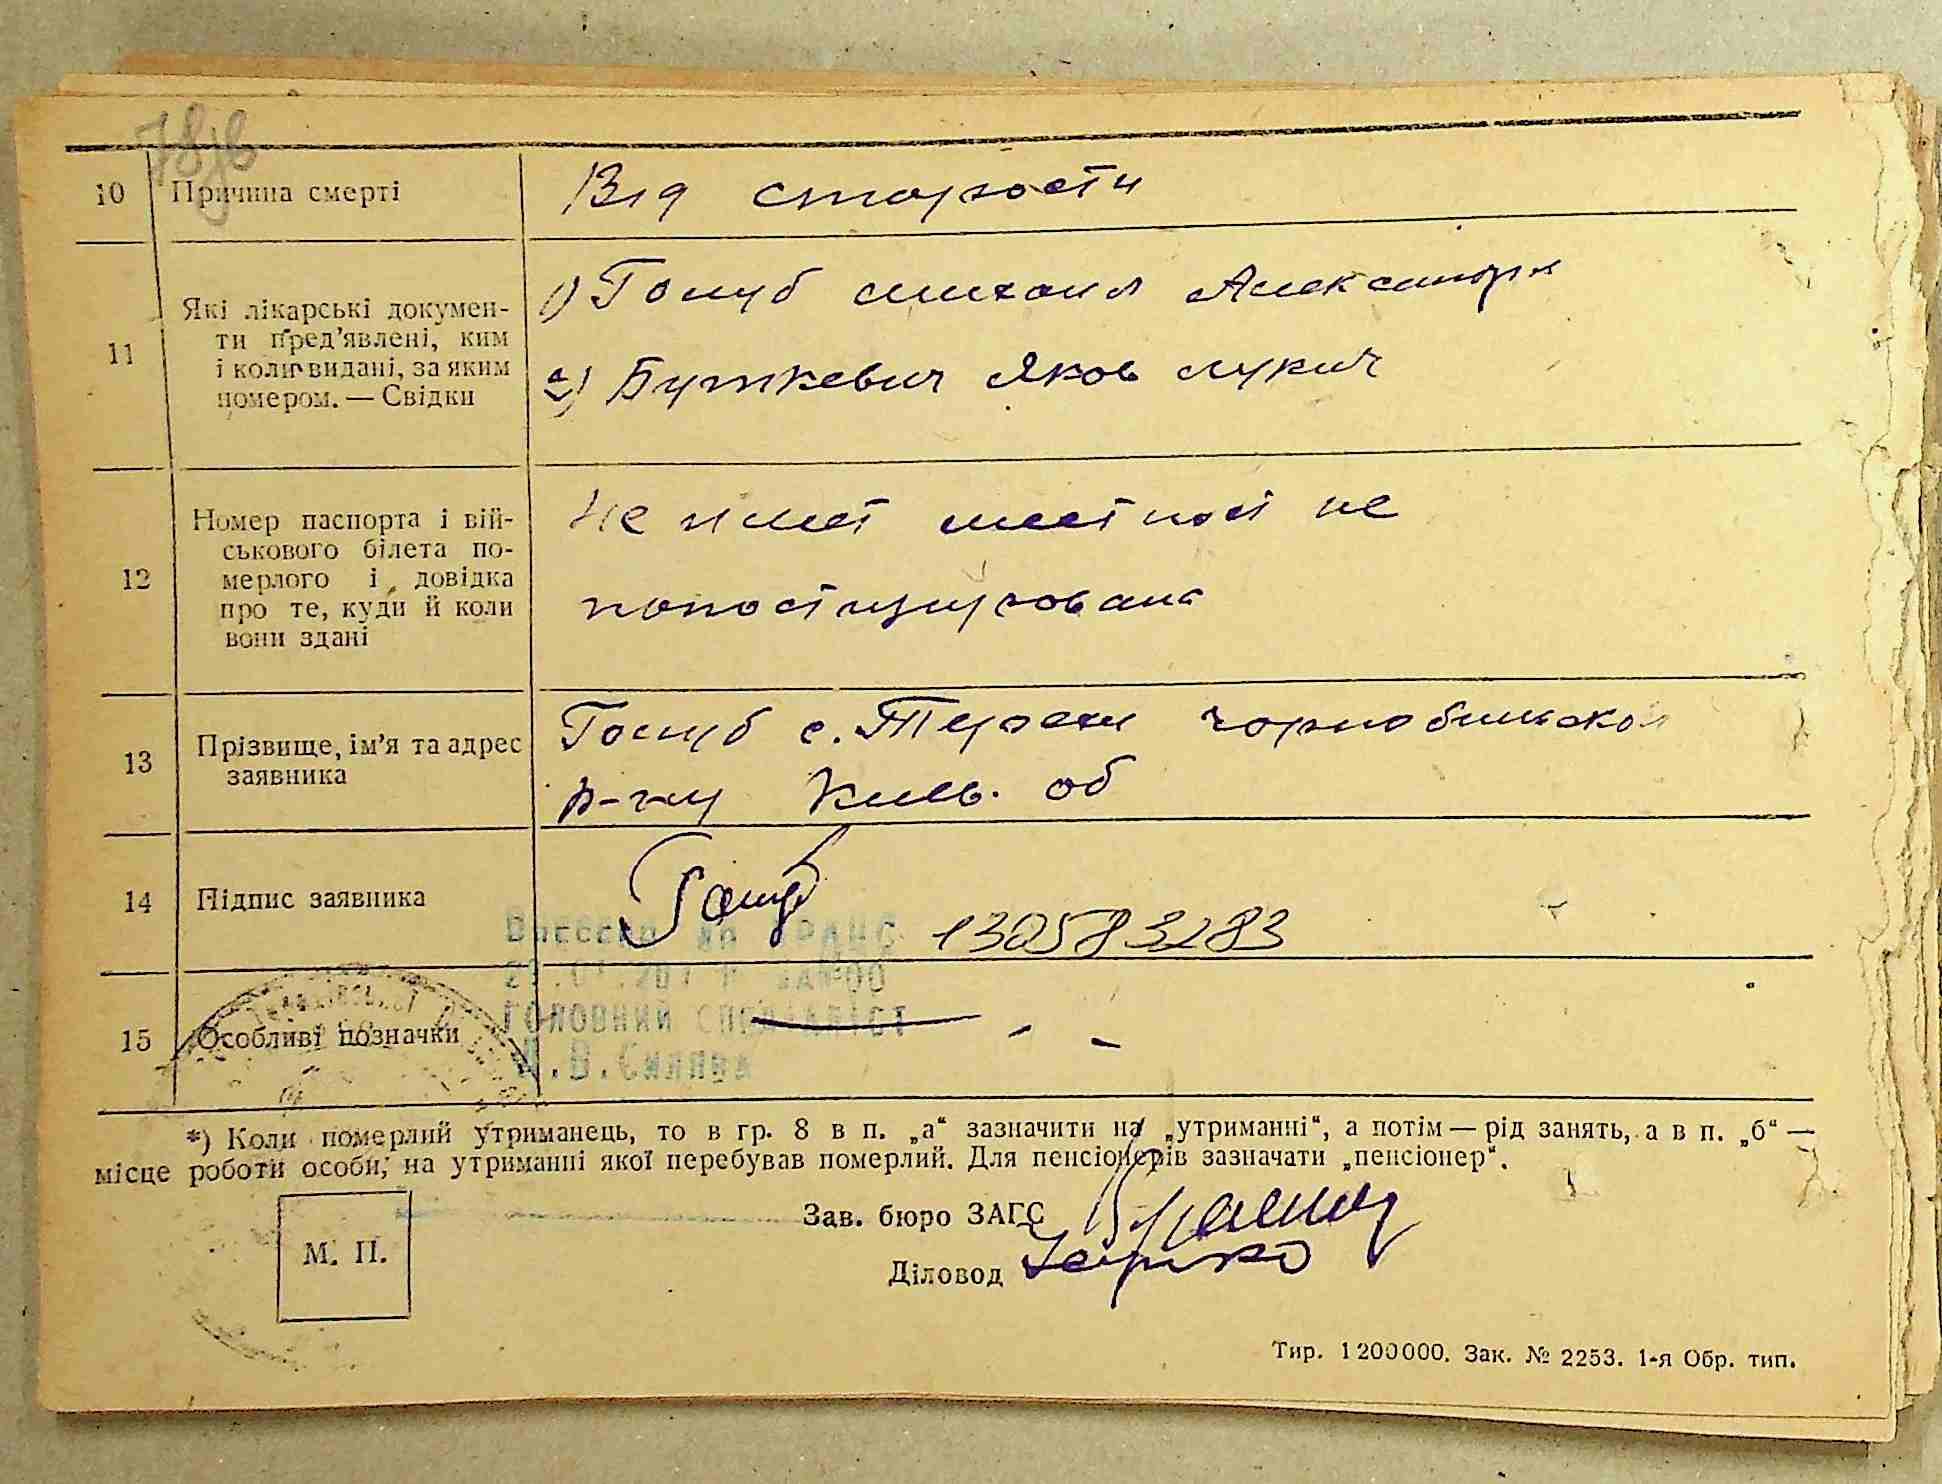 10 Причина смерті Від старости
11 Які лікарські докумен-
ти пред'явлені, ким
і коли видані, за яким
номером. — Свідки
1) Голуб михаил Александр
2) Буткевич Яков лукич
12 Номер паспорта і вій-
ськового білета по-
мерлого і довідка
про те, куди й коли
вони здані
Не имеет не
13 Прізвище, ім'я та адрес
заявника
Голуб с. чорнобильskoi
р-ну Киев. об
14 Підпис заявника Голуб 130583283
Внесено до ДРАЦС
ГОЛОВНИЙ СПЕЦІАЛІСТ
15 Особливі позначки — - -
*) Коли померлий утриманець, то в гр. 8 в п. „а“ зазначити на „утриманні“, а потім — рід занять, а в п. „б“ —
місце роботи особи, на утриманні якої перебував померлий. Для пенсіонерів зазначати „пенсіонер“.
М. П.
Зав. бюро ЗАГС
Діловод
Тир. 1200000. Зак. № 2253. 1-я Обр. тип.